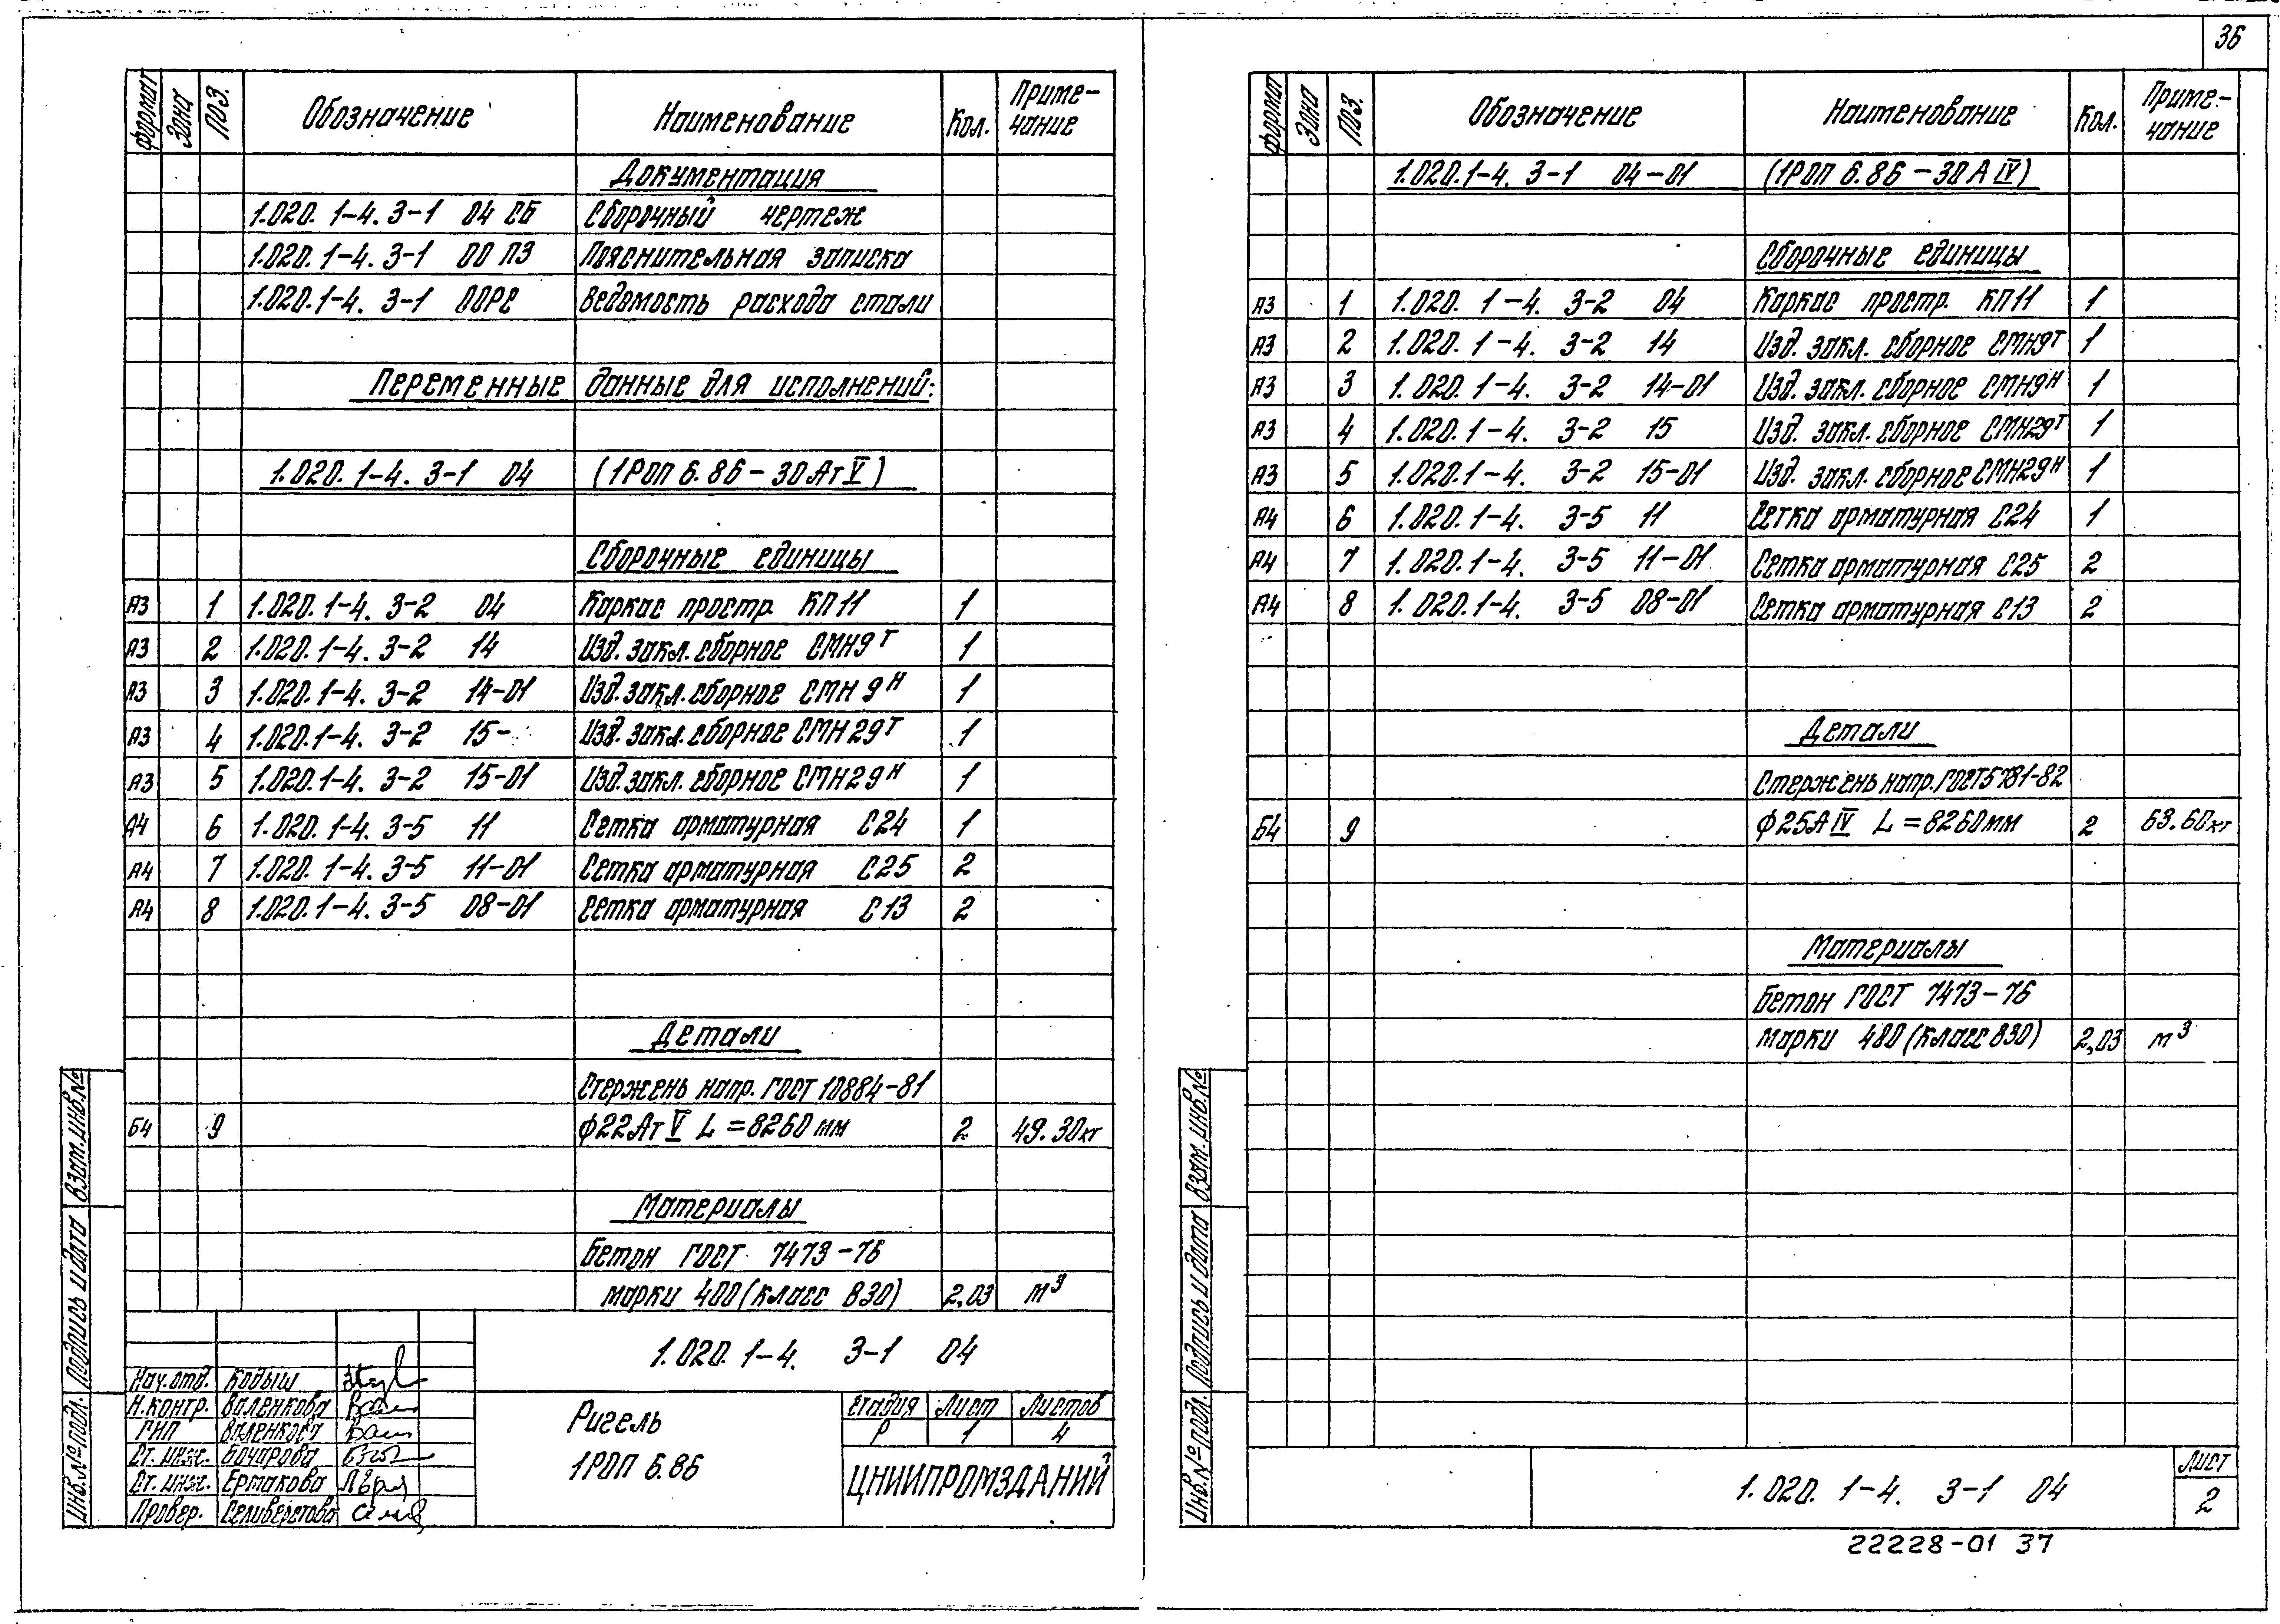 36
формат Зона Поз. Обозначение Наименование Кол. Приме-чание
Документация
1.020.1-4. 3-1 04 СБ Сборочный чертеж
1.020.1-4. 3-1 00 ПЗ Пояснительная записка
1.020.1-4. 3-1 00РС Ведомость расхода стали
Переменные данные для исполнений:
1.020.1-4. 3-1 04 (1РОП 6.86-30АтV)
Сборочные единицы
А3 1 1.020.1-4. 3-2 04 Каркас простр. КП11 1
А3 2 1.020.1-4. 3-2 14 Изд. закл. сборное СМН9т 1
А3 3 1.020.1-4. 3-2 14-01 Изд. закл. сборное СМН9н 1
А3 4 1.020.1-4. 3-2 15- Изд. закл. сборное СМН29т 1
А3 5 1.020.1-4. 3-2 15-01 Изд. закл. сборное СМН29н 1
А4 6 1.020.1-4. 3-5 11 Сетка арматурная С24 1
А4 7 1.020.1-4. 3-5 11-01 Сетка арматурная С25 2
А4 8 1.020.1-4. 3-5 08-01 Сетка арматурная С13 2
Детали
Стержень напр. ГОСТ 10884-81
Б4 9 ф22АтV L=8260мм 2 49.30кг
Материалы
Бетон ГОСТ 7473-76
марки 400 (класс В30) 2,03 м³
1.020.1-4. 3-1 04
Нач.отд. Кодыш
Н.контр. Валенкова
ГИП Валенкова
Ст. инж. Бочарова
Ст. инж. Ермакова
Провер. Селиверстова
Ригель
1РОП 6.86
Стадия Лист Листов
Р 1 4
ЦНИИПРОМЗДАНИЙ
Инв.№подл. Подпись и дата Взам.инв.№
формат Зона Поз. Обозначение Наименование Кол. Приме-чание
1.020.1-4. 3-1 04-01 (1РОП 6.86-30АIV)
Сборочные единицы
А3 1 1.020.1-4. 3-2 04 Каркас простр. КП11 1
А3 2 1.020.1-4. 3-2 14 Изд. закл. сборное СМН9т 1
А3 3 1.020.1-4. 3-2 14-01 Изд. закл. сборное СМН9н 1
А3 4 1.020.1-4. 3-2 15 Изд. закл. сборное СМН29т 1
А3 5 1.020.1-4. 3-2 15-01 Изд. закл. сборное СМН29н 1
А4 6 1.020.1-4. 3-5 11 Сетка арматурная С24 1
А4 7 1.020.1-4. 3-5 11-01 Сетка арматурная С25 2
А4 8 1.020.1-4. 3-5 08-01 Сетка арматурная С13 2
Детали
Стержень напр. ГОСТ5781-82
Б4 9 ф25АIV L=8260мм 2 63.60кг
Материалы
Бетон ГОСТ 7473-76
марки 400 (класс В30) 2,03 м³
Инв.№подл. Подпись и дата Взам.инв.№
1.020.1-4. 3-1 04
Лист
2
22228-01 37